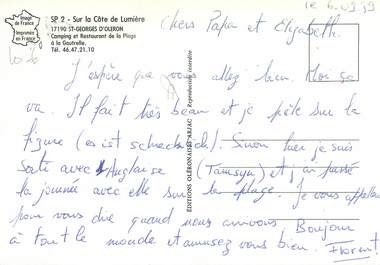 le 6.09.99
Image de France
Imprimée en France
SP 2 - Sur la Côte de Lumière
17190 ST-GEORGES D'OLERON
Camping et Restaurant de la Plage
à la Gautrelle.
Tél. 46.47.21.10
ÉDITIONS OLÉRONAISES ARZAC
Reproduction interdite
Chers Papa et Elizabeth.
J'espère que vous allez bien. Moi ça
va. Il fait très beau et je pèle sur la
figure (es ist schrecklich). Sinon hier je suis
sorti avec l'Anglaise (Tamsyn) et j'ai passé
la journée avec elle sur la plage. Je vous appellerai
pour vous dire quand nous arrivons. Bonjour
à tout le monde et amusez vous bien. Florent